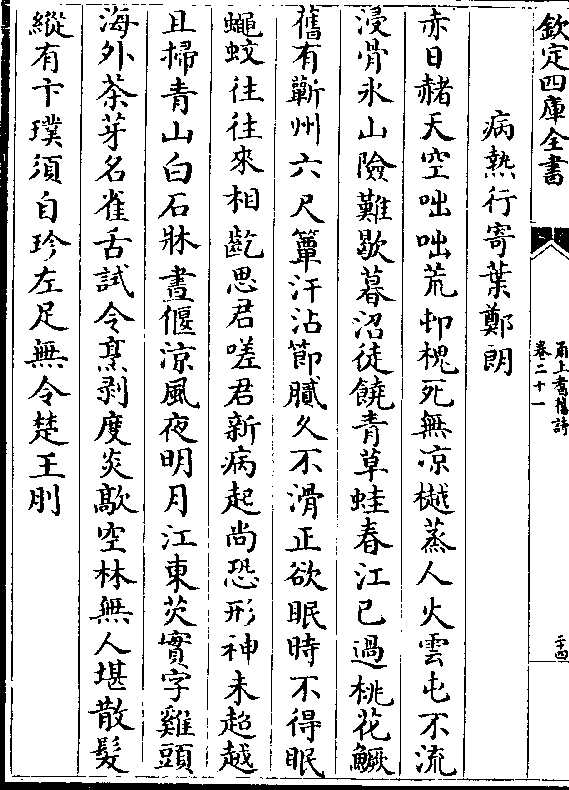 欽定四庫全書
甬上耆舊詩
卷二十一
二十四
病熱行寄葉鄭朗
赤日赭天空咄咄荒卭槐死無凉樾蒸人火雲屯不流
浸骨氷山險難歇暮沼徒饒青草蛙春江已過桃花鱖
舊有蘄州六尺簟汗沾節膩久不滑正欲眠時不得眠
蠅蚊往往來相齕思君嗟君新病起尚恐形神未超越
且掃青山白石牀晝偃涼風夜明月江東芡實字雞頭
海外茶芽名雀舌試令烹剥度炎歊空林無人堪散髮
縱有卞璞須自珍左足無令楚王刖